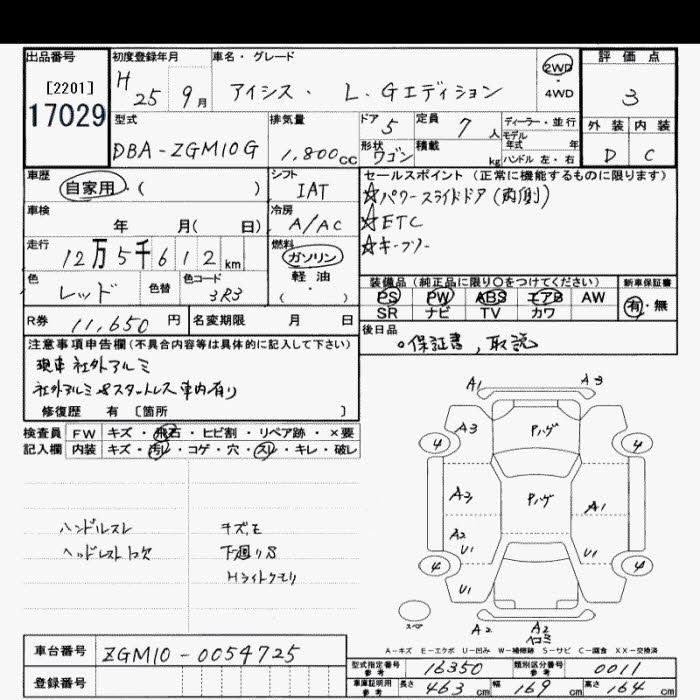 出品番号 初度登録年月 車名・グレード 2WD・4WD 評価点
[2201]
17029
H 25 9月 アイシス・L.Gエディション 3
型式 排気量 ドア 5 定員 7人 ディーラー・並行
モデル年式 年
外装 内装
DBA-ZGM10G 1,800cc 形状 ワゴン 積載 kg ハンドル 左・右 D C
車歴 シフト セールスポイント(正常に機能するものに限ります)
自家用・( ) IAT ☆パワースライドドア(両側)
車検 冷房 ☆ETC
年 月( 日) A/AC ☆キーフリー
走行 燃料
12万5千612km ガソリン
軽油・
( )
色 色替 色コード 装備品(純正品に限り○をつけてください) 新車保証書
レッド 3R3 PS PW ABS エアB AW 有・無
SR ナビ TV カワ
R券 11,650円 名変期限 月 日 後日品
注意事項申告欄(不具合内容等は具体的に記入して下さい) 。保証書,取説
現車 社外アルミ
社外アルミ&スタットレス 車内有り
修復歴 有 〔箇所 〕
検査員 FW キズ・飛石・ヒビ割・リペア跡・×要
記入欄 内装 キズ・汚レ・コゲ・穴・スレ・キレ・破レ
A1 A3
A3 Pハゲ
4 4
A3 Pハゲ A1
ハンドルスレ キズモ
ヘッドレスト欠 下廻りS
Hライトクモリ
A2
U1 U1
4 4
U1
スペア
A2 A2
A-キズ E-エクボ U-凹み W-補修跡 S-サビ C-腐食 XX-交換済
車台番号 ZGM10-0054725
登録番号
型式指定番号 参考 16350 類別区分番号 参考 0011
車庫証明用 参考 長さ 463cm 幅 169cm 高さ 164cm